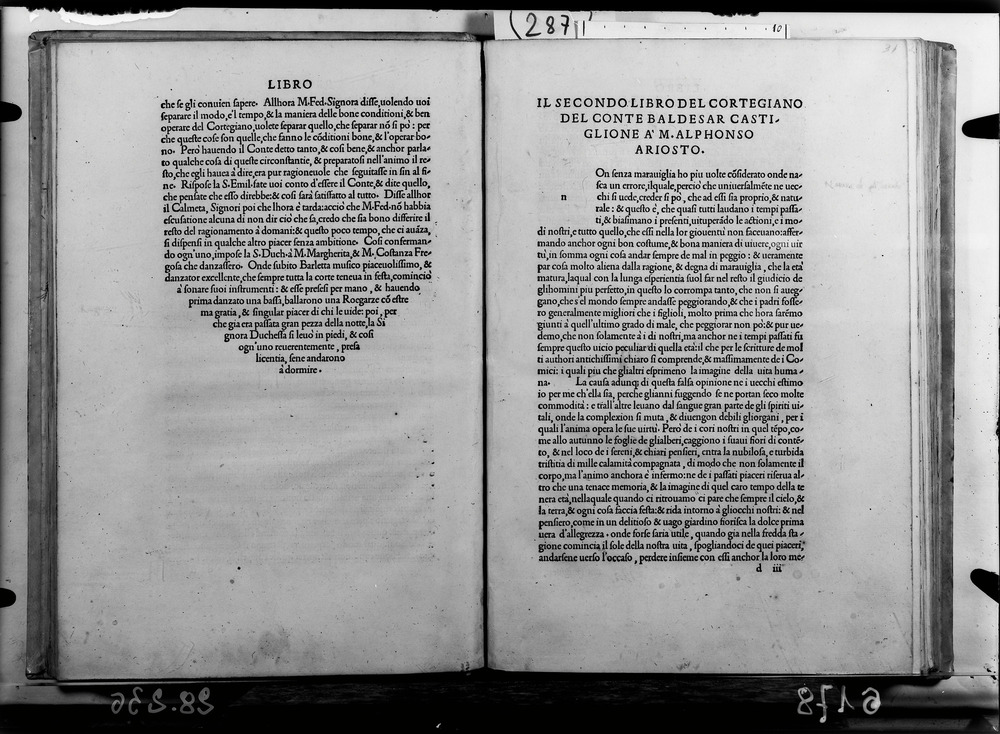 (287)
10
31
LIBRO
che se gli conuien sapere. Allhora M.Fed.Signora disse,uolendo uoi
separare il modo,e'l tempo,& la maniera delle bone conditioni,& ben
operare del Cortegiano,uolete separar quello,che separar nõ si pò : per
che queste cose son quelle,che fanno le cõditioni bone,& l'operar bo-
no. Però hauendo il Conte detto tanto,& cosi bene,& anchor parla-
to qualche cosa di queste circonstantie, & preparatosi nell'animo il re-
sto,che egli hauea à dire,era pur ragioneuole che seguitasse in fin al fi-
ne. Rispose la S.Emil.fate uoi conto d'essere il Conte,& dite quello,
che pensate che esso direbbe:& cosi sarà satisfatto al tutto. Disse allhor
il Calmeta, Signori poi che lhora è tarda:acciò che M.Fed.nõ habbia
escusatione alcuna di non dir ciò che sa,credo che sia bono differire il
resto del ragionamento à domani:& questo poco tempo, che ci auãza,
si dispensi in qualche altro piacer senza ambitione. Cosi conferman-
do ogn'uno,impose la S.Duch.à M.Margherita,& M. Costanza Fre-
gosa che danzassero. Onde subito Barletta musico piaceuolissimo, &
danzator excellente,che sempre tutta la corte teneua in festa,cominciò
à sonare suoi instrumenti : & esse presesi per mano , & hauendo
prima danzato una bassa,ballarono una Roegarze cõ estre
ma gratia, & singular piacer di chi le uide: poi, per
che gia era passata gran pezza della notte,la Si
gnora Duchessa si leuò in piedi, & cosi
ogn'uno reuerentemente, presa
licentia, sene andarono
à dormire.
IL SECONDO LIBRO DEL CORTEGIANO
DEL CONTE BALDESAR CASTI-
GLIONE A' M. ALPHONSO
ARIOSTO.
n
On senza marauiglia ho piu uolte cõsiderato onde na-
sca un errore,ilquale,perciò che uniuersalmẽte ne uec-
chi si uede,creder si pò , che ad essi sia proprio,& natu-
rale : & questo è, che quasi tutti laudano i tempi passa-
ti,& biasimano i presenti,uituperãdo le actioni,e i mo-
di nostri,e tutto quello,che essi nella lor giouentù non faceuano:affer-
mando anchor ogni bon costume,& bona maniera di uiuere,ogni uir
tù,in somma ogni cosa andar sempre de mal in peggio : & ueramente
par cosa molto aliena dalla ragione, & degna di marauiglia , che la età
matura,laqual con la lunga esperientia suol far nel resto il giudicio de
glihomini piu perfetto,in questo lo corrompa tanto, che non si aueg-
gano,che s'el mondo sempre andasse peggiorando,& che i padri fosse-
ro generalmente migliori che i figlioli, molto prima che hora sarẽmo
giunti à quell'ultimo grado di male, che peggiorar non pò:& pur ue-
demo,che non solamente à i di nostri,ma anchor ne i tempi passati fù
sempre questo uicio peculiar di quella età:il che per le scritture de mol
ti authori antichissimi chiaro si comprende,& massimamente de i Co-
mici: i quali piu che glialtri esprimeno la imagine della uita huma-
na. La causa adunq; di questa falsa opinione ne i uecchi estimo
io per me ch'ella sia, perche glianni fuggendo se ne portan seco molte
commodità : e trall'altre leuano dal sangue gran parte de gli spiriti ui-
tali, onde la complexion si muta, & diuengon debili gliorgani , per i
quali l'anima opera le sue uirtù. Però de i cori nostri in quel tẽpo,co-
me allo autunno le foglie de glialberi,caggiono i suaui fiori di contẽ-
to, & nel loco de i sereni,& chiari pensieri, entra la nubilosa,e turbida
tristitia di mille calamità compagnata , di modo che non solamente il
corpo,ma l'animo anchora è infermo:ne de i passati piaceri riserua al-
tro che una tenace memoria, & la imagine di quel caro tempo della te
nera età,nellaquale quando ci ritrouamo ci pare che sempre il cielo,&
la terra,& ogni cosa faccia festa:& rida intorno à gliocchi nostri: & nel
pensiero,come in un delitioso & uago giardino fiorisca la dolce prima
uera d'allegrezza . onde forse saria utile , quando gia nella fredda sta-
gione comincia il sole della nostra uita , spogliandoci de quei piaceri,
andarsene uerso l'occaso , perdere insieme con essi anchor la loro me-
d iii
28.236
6178